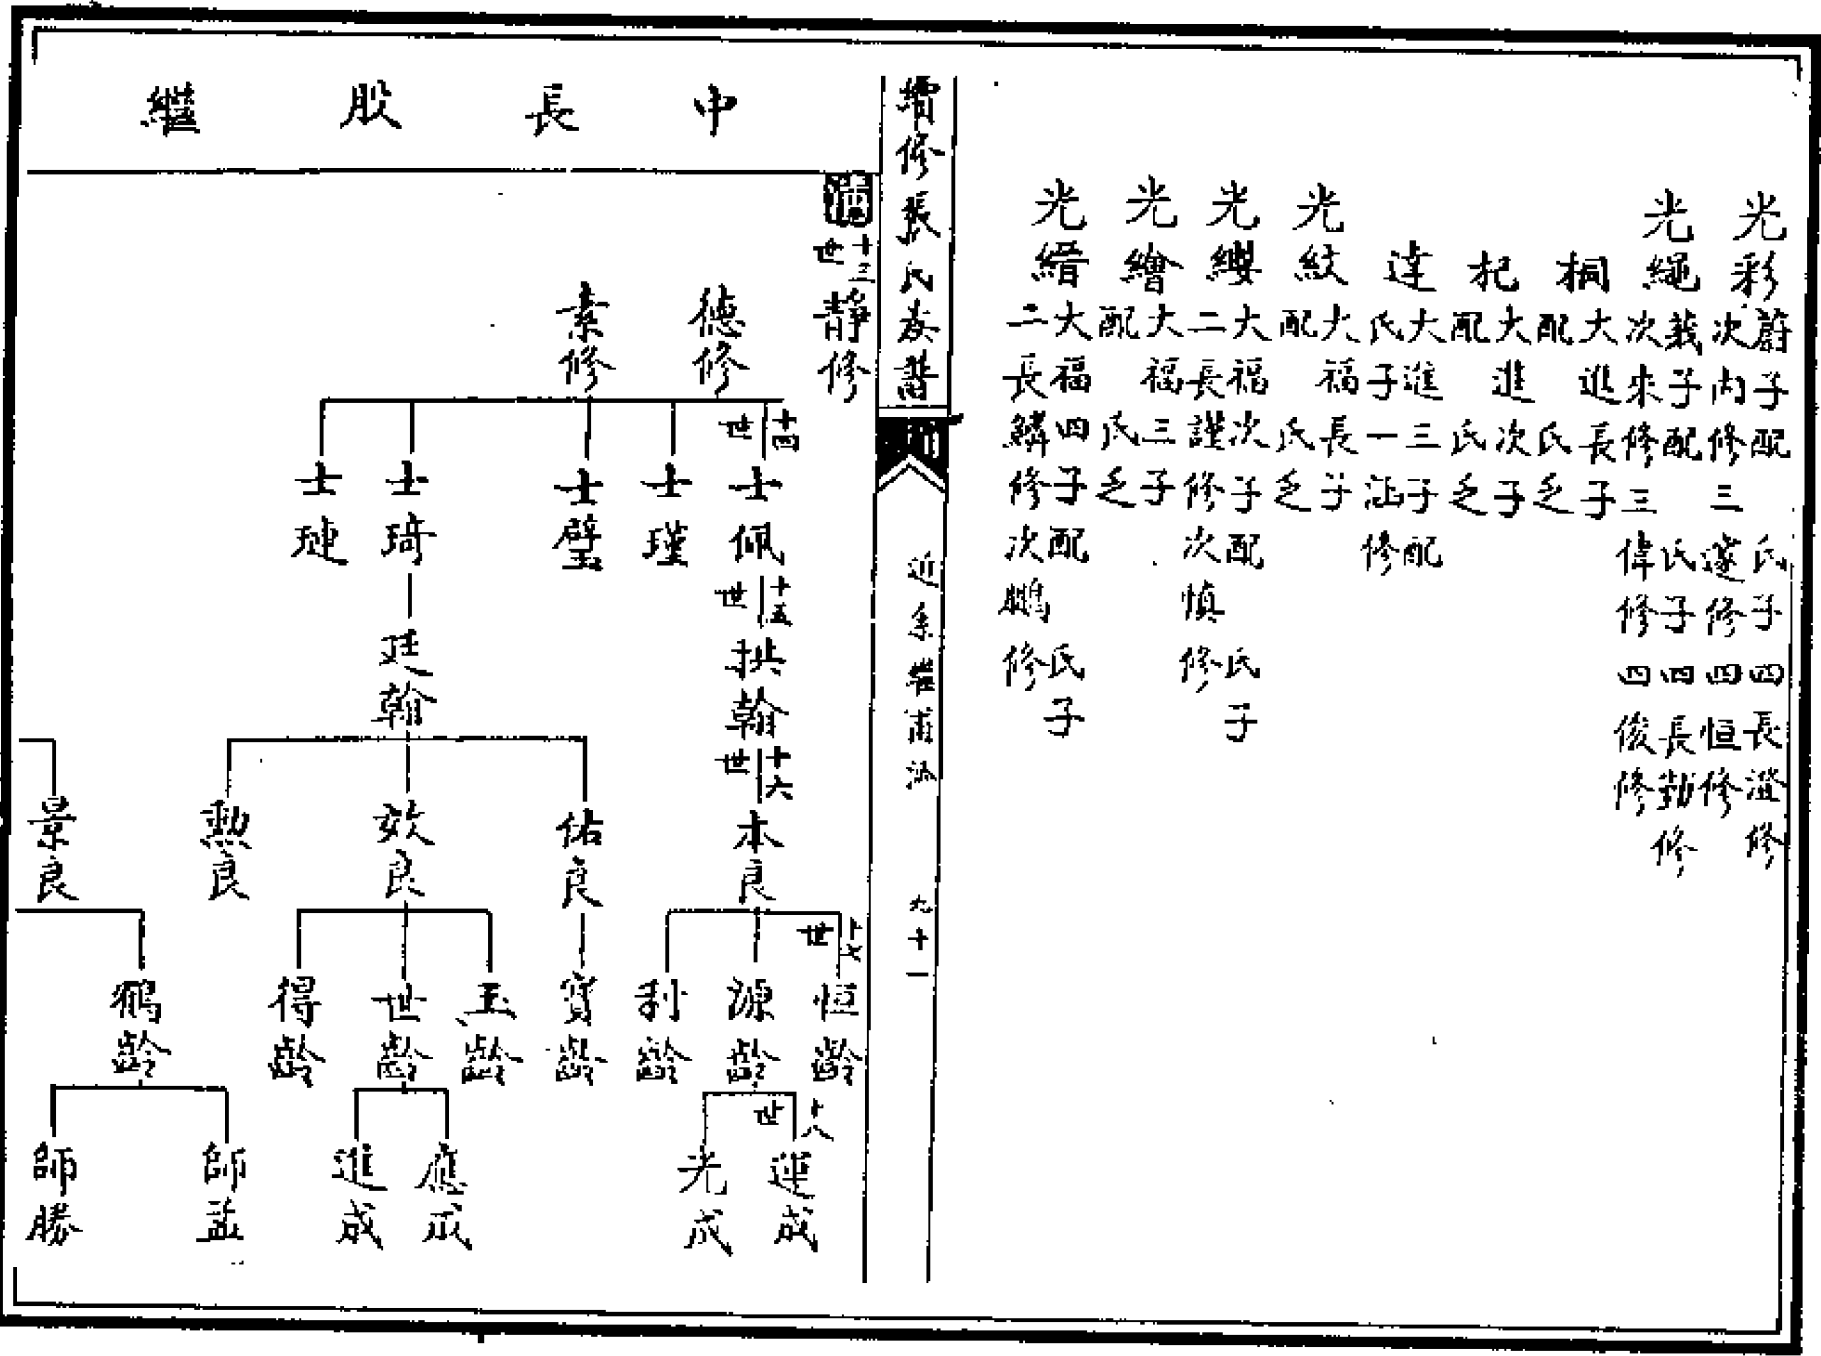 光彩 蔚子配 氏子四長澄修
次內修三遂修四恒修
光繩 莪子配 氏子四長勤修
次來修三偉修四俊修
桐 大進長子
配 氏乏
杞 大進次子
配 氏乏
達 大進三子配
氏子一涵修
光紋 大福長子
配 氏乏
光纓 大福次子配 氏子
二長謹修次慎修
光繪 大福三子
配 氏乏
光縉 大福四子配 氏子
二長鱗修次鵬修
續修張氏友譜
九十一
中長股繼
十三世
靜修
德修
素修
十四世
士佩
士瑾
士璧
士琦
士璉
十五世
拱翰
廷翰
十六世
本良
佑良
效良
勲良
景良
十七世
恒齡
源齡
利齡
寶齡
玉齡
世齡
得齡
鶴齡
十八世
運成
光成
應成
進成
師孟
師勝